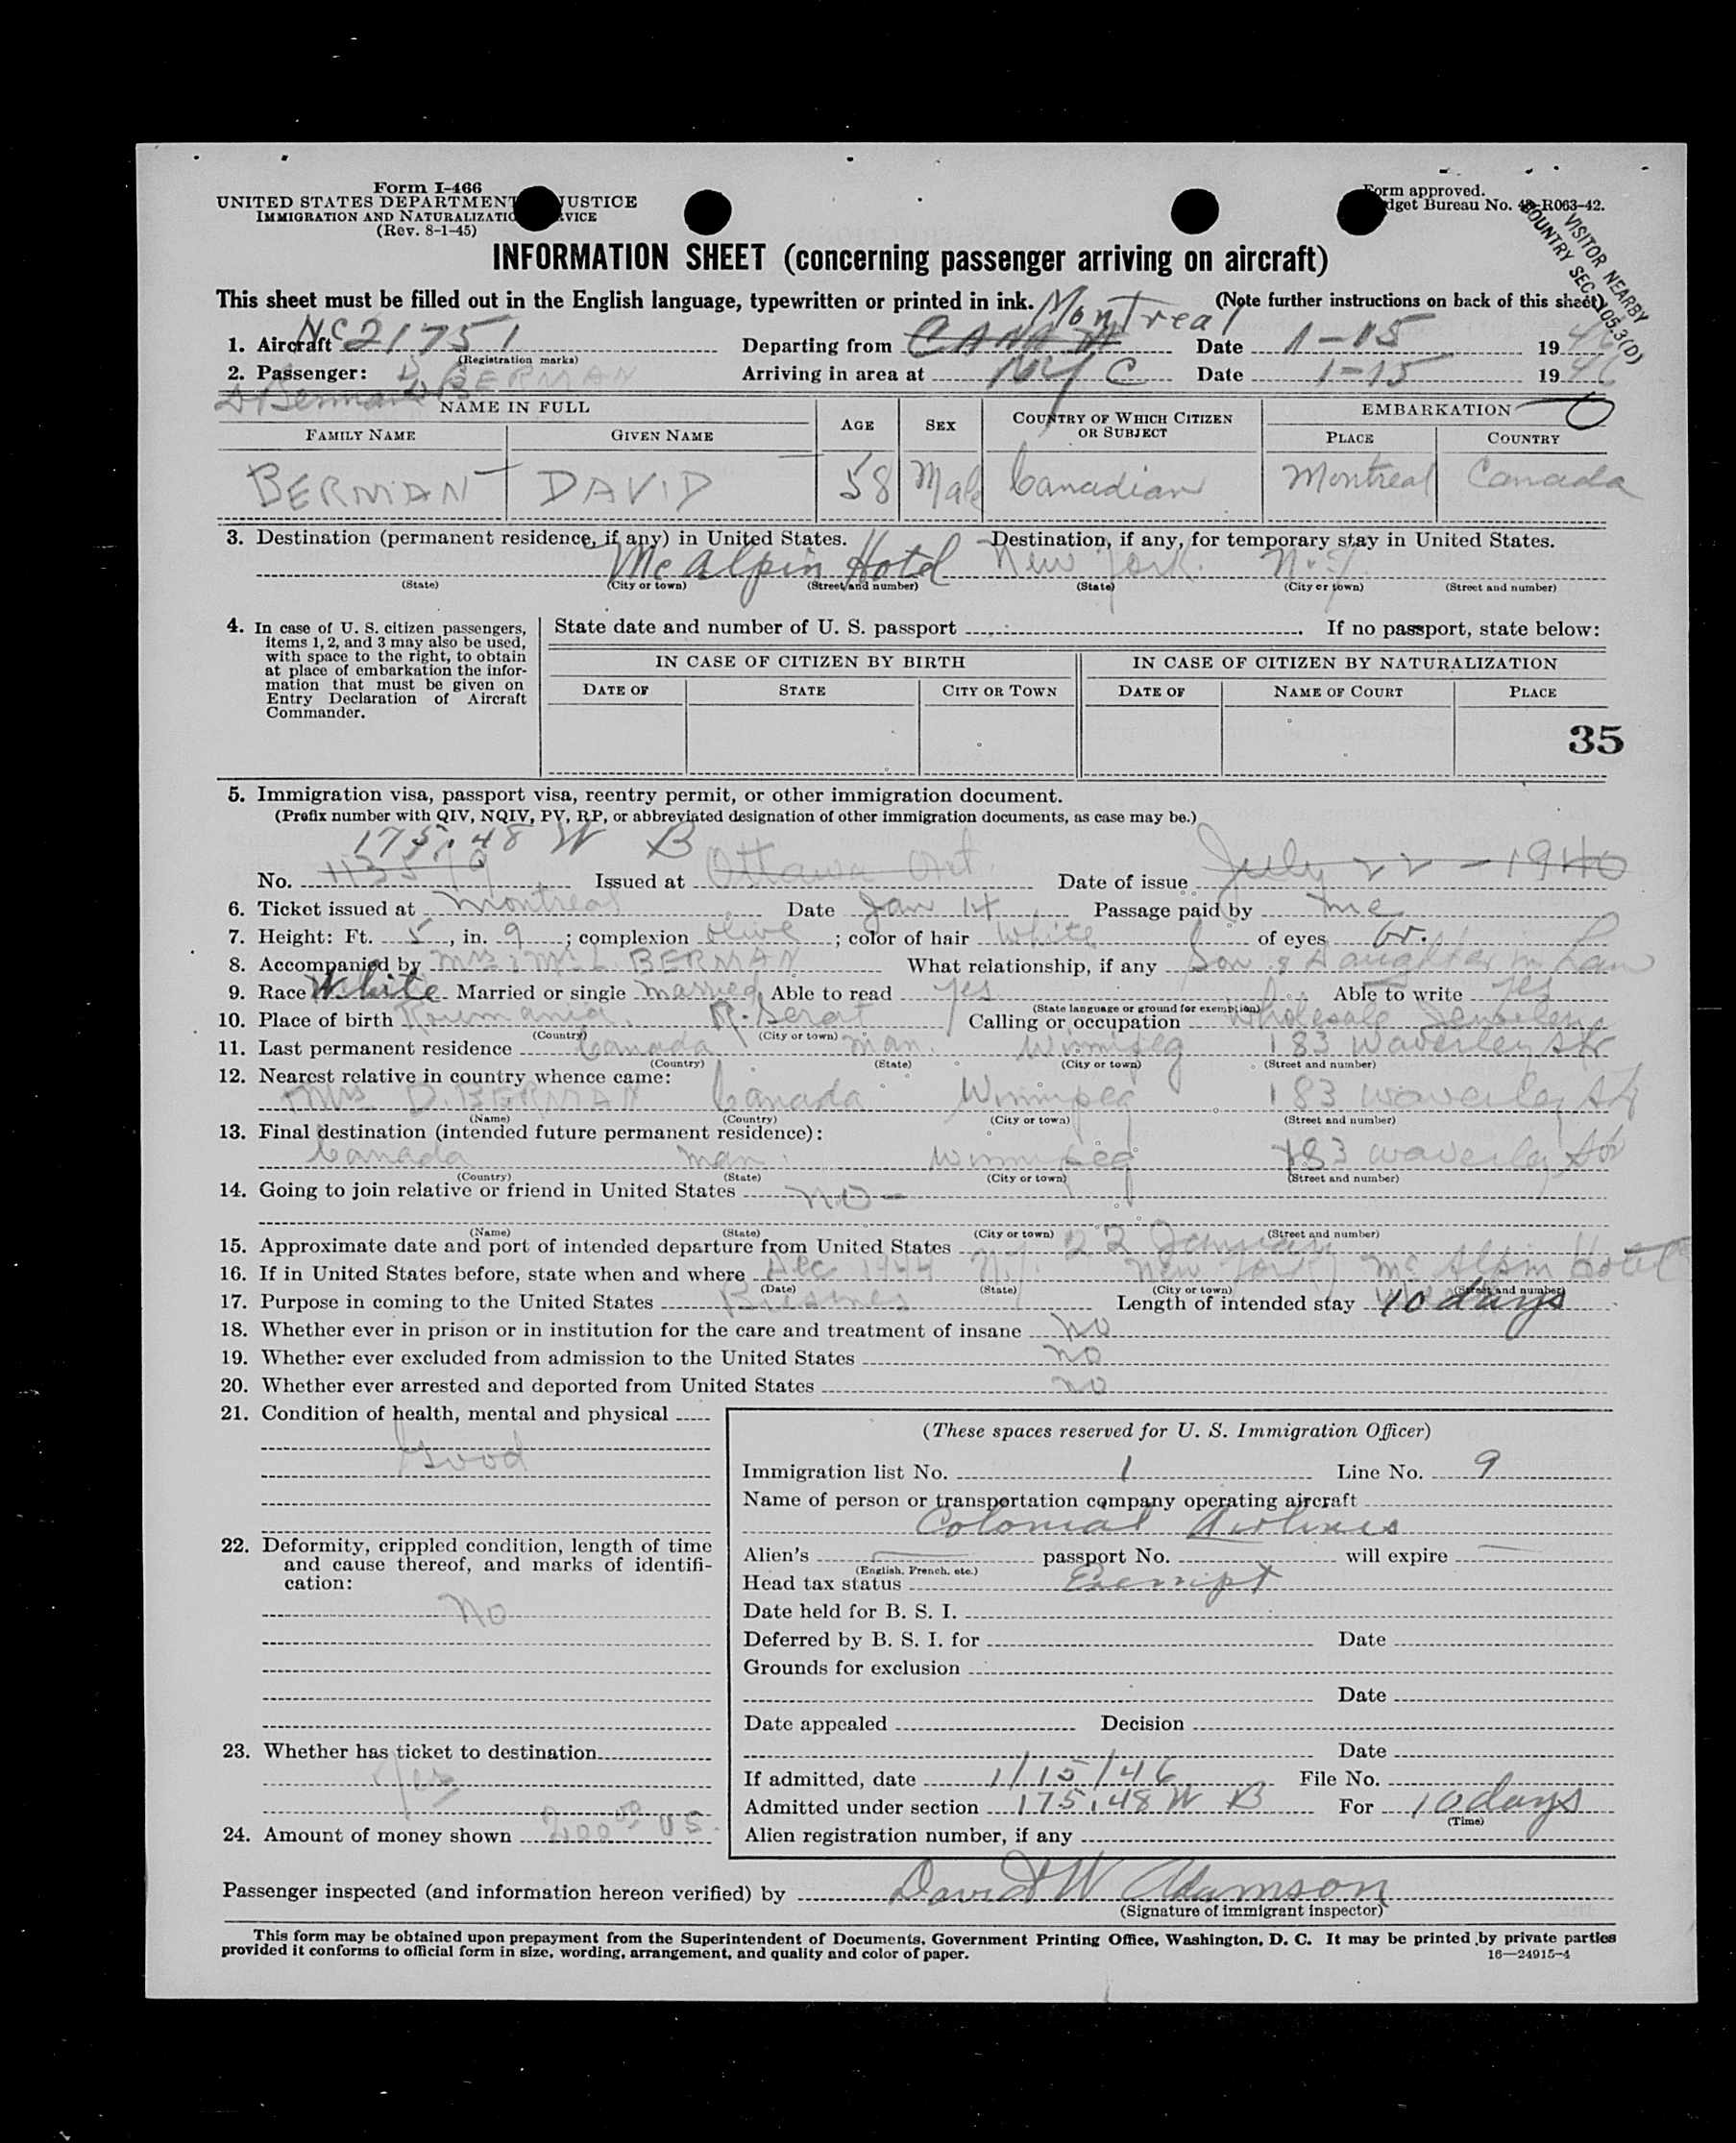 Form I-466
UNITED STATES DEPARTMENT JUSTICE
IMMIGRATION AND NATURALIZATIO VICE
(Rev. 8-1-45)
Form approved.
dget Bureau No. 43-R063-42.
VISITOR NEARBY
COUNTRY SEC 105.3(D)
INFORMATION SHEET (concerning passenger arriving on aircraft)
This sheet must be filled out in the English language, typewritten or printed in ink. (Note further instructions on back of this sheet)
Montreal
1. Aircraft NC21751 Departing from CANADA Date 1-15 1946
(Registration marks)
2. Passenger: D BERMAN Arriving in area at NYC Date 1-15 1946
D Berman
NAME IN FULL AGE SEX COUNTRY OF WHICH CITIZEN OR SUBJECT EMBARKATION
FAMILY NAME GIVEN NAME PLACE COUNTRY
BERMAN DAVID 58 Male Canadian Montreal Canada
3. Destination (permanent residence, if any) in United States. Destination, if any, for temporary stay in United States.
Mc Alpin Hotel New York. N.Y.
(State) (City or town) (Street and number) (State) (City or town) (Street and number)
4. In case of U. S. citizen passengers, items 1, 2, and 3 may also be used, with space to the right, to obtain at place of embarkation the information that must be given on Entry Declaration of Aircraft Commander.
State date and number of U. S. passport . If no passport, state below:
IN CASE OF CITIZEN BY BIRTH IN CASE OF CITIZEN BY NATURALIZATION
DATE OF STATE CITY OR TOWN DATE OF NAME OF COURT PLACE
35
5. Immigration visa, passport visa, reentry permit, or other immigration document.
(Prefix number with QIV, NQIV, PV, RP, or abbreviated designation of other immigration documents, as case may be.)
175.48 W B
No. 113579 Issued at Ottawa Ont. Date of issue July 22 - 1940
6. Ticket issued at Montreal Date Jan 14 Passage paid by me
7. Height: Ft. 5, in. 9; complexion olive; color of hair White of eyes br.
8. Accompanied by Mrs & Mr L. BERMAN What relationship, if any Son & Daughter in Law
9. Race White Married or single married Able to read yes Able to write yes
(State language or ground for exemption)
10. Place of birth Roumania. R. Serat Calling or occupation Wholesale Jewelery
(Country) (City or town)
11. Last permanent residence Canada man. Winnipeg 183 Waverley Str
(Country) (State) (City or town) (Street and number)
12. Nearest relative in country whence came:
Mrs D. BERMAN Canada Winnipeg 183 Waverley Str
(Name) (Country) (City or town) (Street and number)
13. Final destination (intended future permanent residence):
Canada man. Winnipeg 183 waverley Str
(Country) (State) (City or town) (Street and number)
14. Going to join relative or friend in United States NO -
(Name) (State) (City or town) (Street and number)
15. Approximate date and port of intended departure from United States 22 January
16. If in United States before, state when and where Dec 1944 N.Y. New York Mc Alpin Hotel
(Date) (State) (City or town) (Street and number)
17. Purpose in coming to the United States Business Length of intended stay 10 days
18. Whether ever in prison or in institution for the care and treatment of insane no
19. Whether ever excluded from admission to the United States no
20. Whether ever arrested and deported from United States no
21. Condition of health, mental and physical
Good
22. Deformity, crippled condition, length of time and cause thereof, and marks of identification:
No
23. Whether has ticket to destination
Yes
24. Amount of money shown 200.00 US.
(These spaces reserved for U. S. Immigration Officer)
Immigration list No. 1 Line No. 9
Name of person or transportation company operating aircraft
Colonial Airlines
Alien's passport No. will expire
(English, French, etc.)
Head tax status Exempt
Date held for B. S. I.
Deferred by B. S. I. for Date
Grounds for exclusion
Date
Date appealed Decision
Date
If admitted, date 1/15/46 File No.
Admitted under section 175.48 W B For 10 days
(Time)
Alien registration number, if any
Passenger inspected (and information hereon verified) by David W Adamson
(Signature of immigrant inspector)
This form may be obtained upon prepayment from the Superintendent of Documents, Government Printing Office, Washington, D. C. It may be printed by private parties
provided it conforms to official form in size, wording, arrangement, and quality and color of paper. 16—24915-4